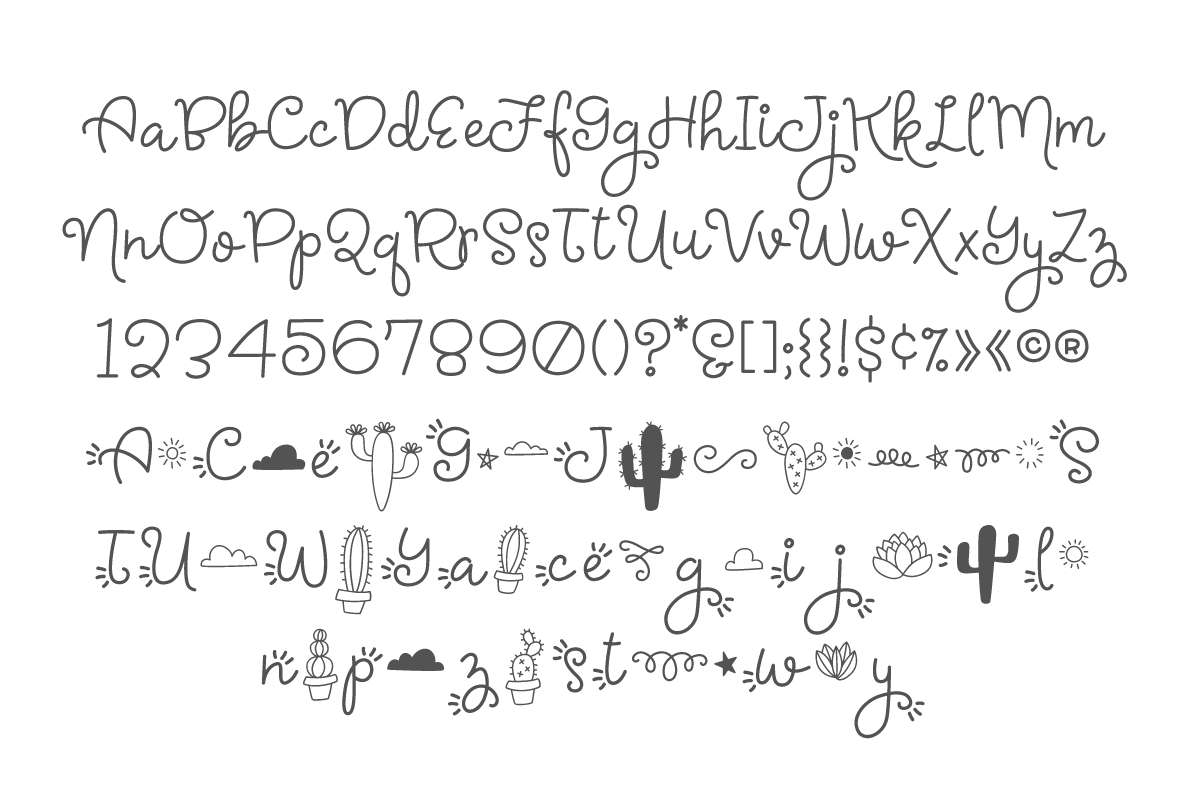 AaBbCcDdEeFfGgHhIiJjKkLlMm
NnOoPpQqRrSsTtUuVvWwXxYyZz
1234567890()?*&[];{}!$¢%»«©®
A C e G J S
T U W Y a c e g i j l
n p z s t w y